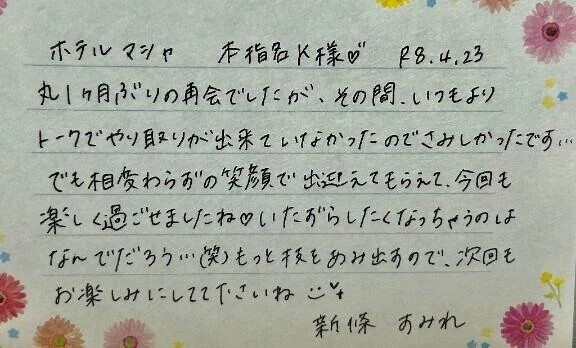 ホテル マシャ 本指名K様♡ R8.4.23
丸1ヶ月ぶりの再会でしたが、その間、いつもより
トークでやり取りが出来ていなかったのでさみしかったです…
でも相変わらずの笑顔で出迎えてもらえて、今回も
楽しく過ごせましたね♡いたずらしたくなっちゃうのは
なんでだろう…(笑)もっと技をあみ出すので、次回も
お楽しみにしててくださいね
新條 すみれ